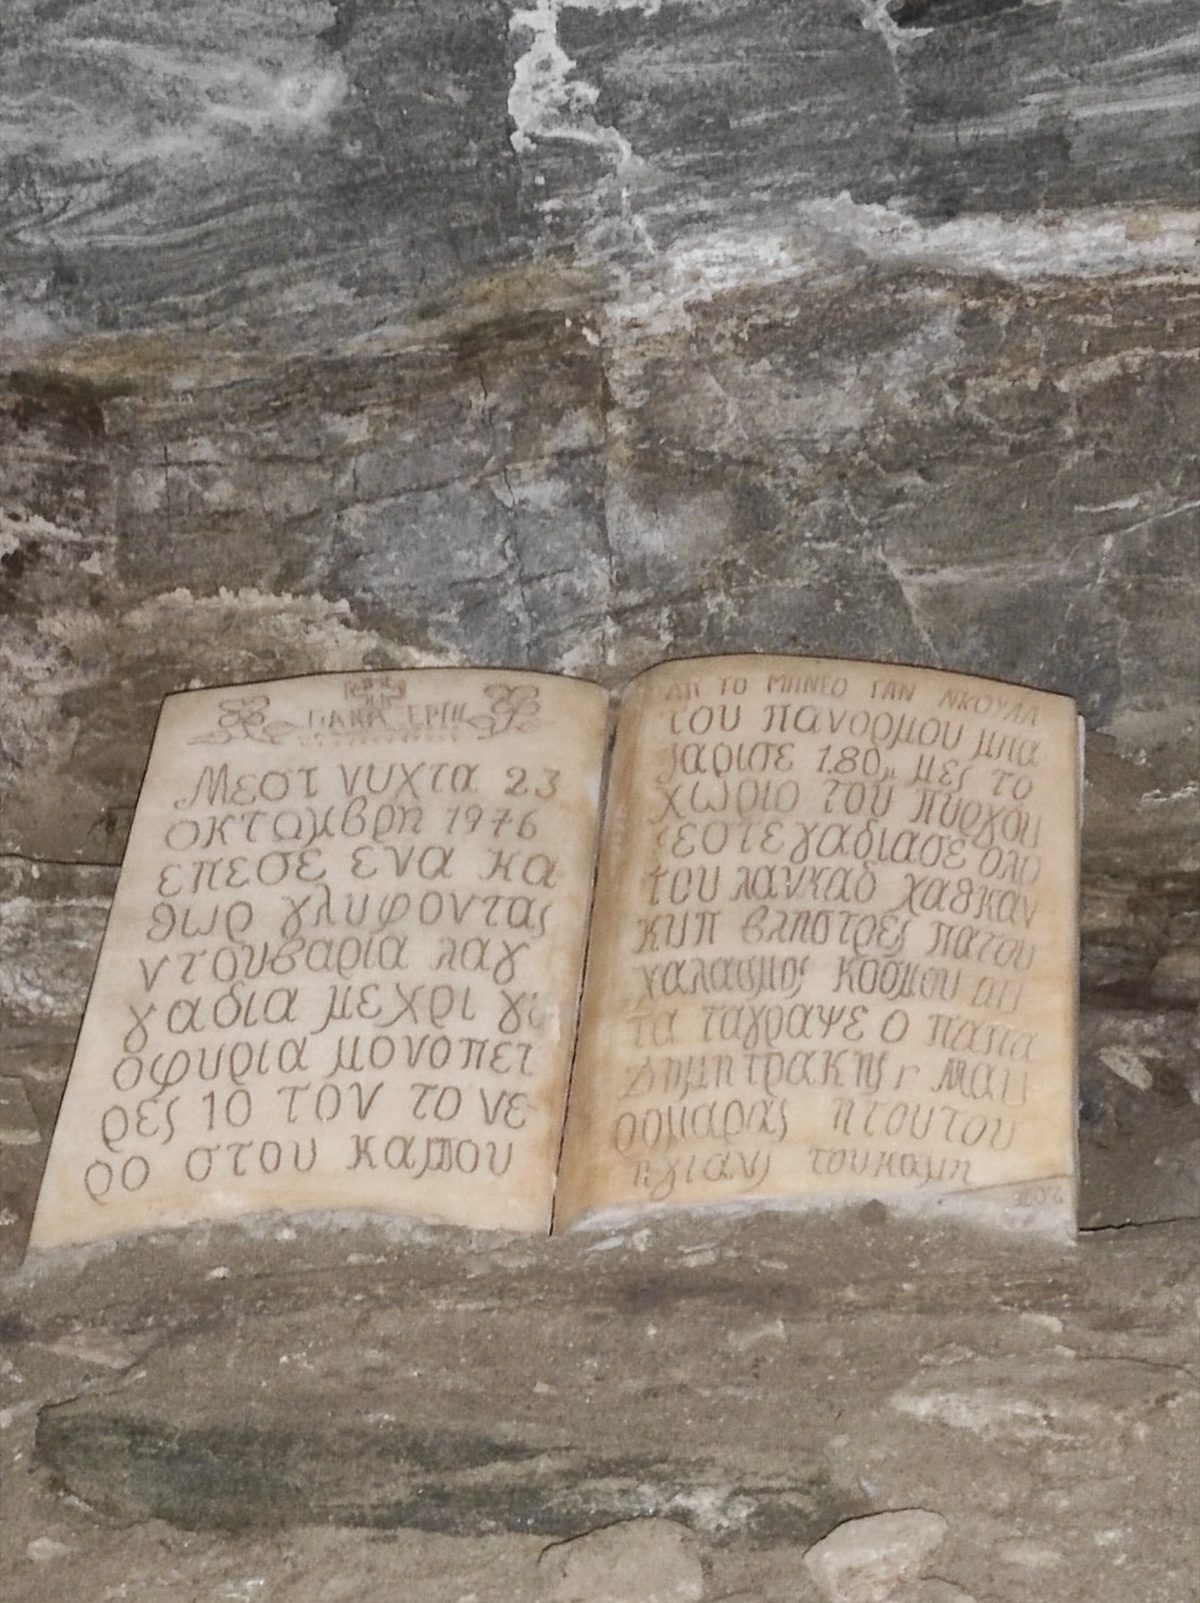 Μεστ νυχτα 23
οκτωμβρη 1976
επεσε ενα κα
θωρ γλυφοντας
ντουβαρια λαγ
γαδια μεχρι γι
οφυρια μονοπετ
ρες 10 τον το νε
ρο στου καμπου
ΑΠ ΤΟ ΜΠΝΕΟ ΓΑΝ ΝΙΚΟΥΛΑ
του πανορμου μπα
ρισε 1.80 μες το
χωριο του πυργου
γαδιασε ολο
του λανκαδ χαθκαν
κυπ βληστρες πατου
χαλασμος κοσμου απ
τα ταγραψε ο παπα
Δημητρακης Μαυ
ρομαρας πτουτου
τουκαμη